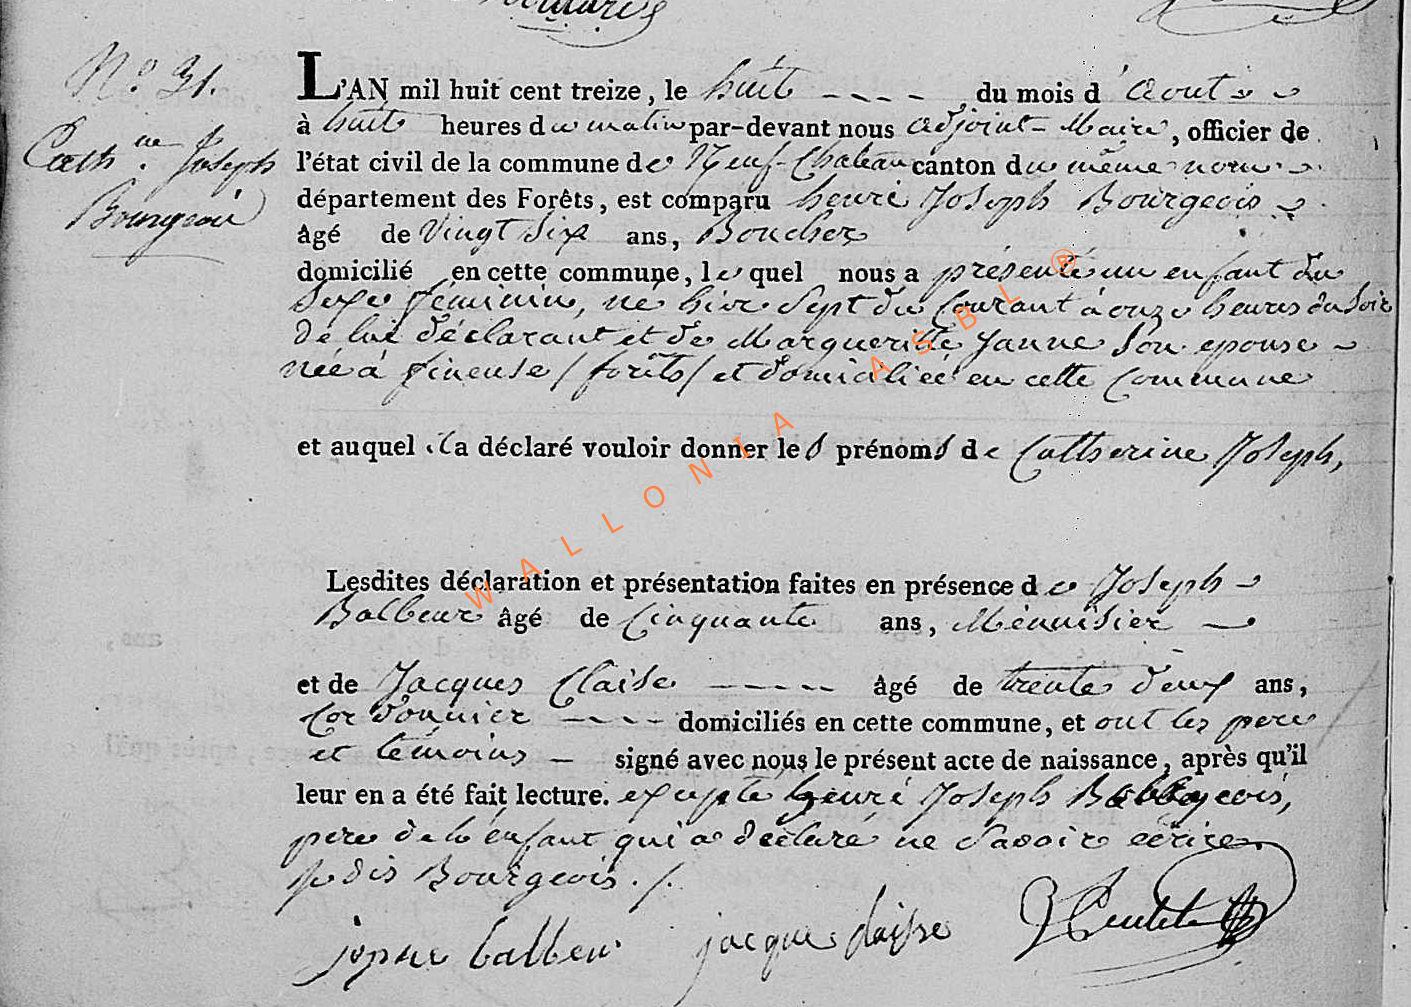 N.º 31.
Cath.ine Joseph
Bourgeois
L'AN mil huit cent treize, le huit - - - - du mois d'Aout
à huit heures du matin par-devant nous adjoint-Maire, officier de
l'état civil de la commune de Neuf-Chateau canton du même nom
département des Forêts, est comparu henri Joseph Bourgeois
âgé de Vingt Six ans, Boucher
domicilié en cette commune, lequel nous a présenté un enfant du
Sexe féminin, né hier Sept du Courant à onze heures du Soir
de lui déclarant et de Margueritte Janne Son epouse
née à fineuse / forêts / et domiciliée en cette Commune
et auquel il a déclaré vouloir donner les prénoms de Catherine Joseph,
Lesdites déclaration et présentation faites en présence de Joseph
Balbeur âgé de Cinquante ans, Ménuisier
et de Jacques Claise - - - - - âgé de trente deux ans,
Cordonnier - - - - domiciliés en cette commune, et ont les pere
et témoins - signé avec nous le présent acte de naissance, après qu'il
leur en a été fait lecture. excepté henri Joseph Bourgeois,
pere de l'enfant qui a déclaré ne Savoir écrire
Je dis Bourgeois ./.
josue balbeur jacque claisse
WALLONIA ASBL ®